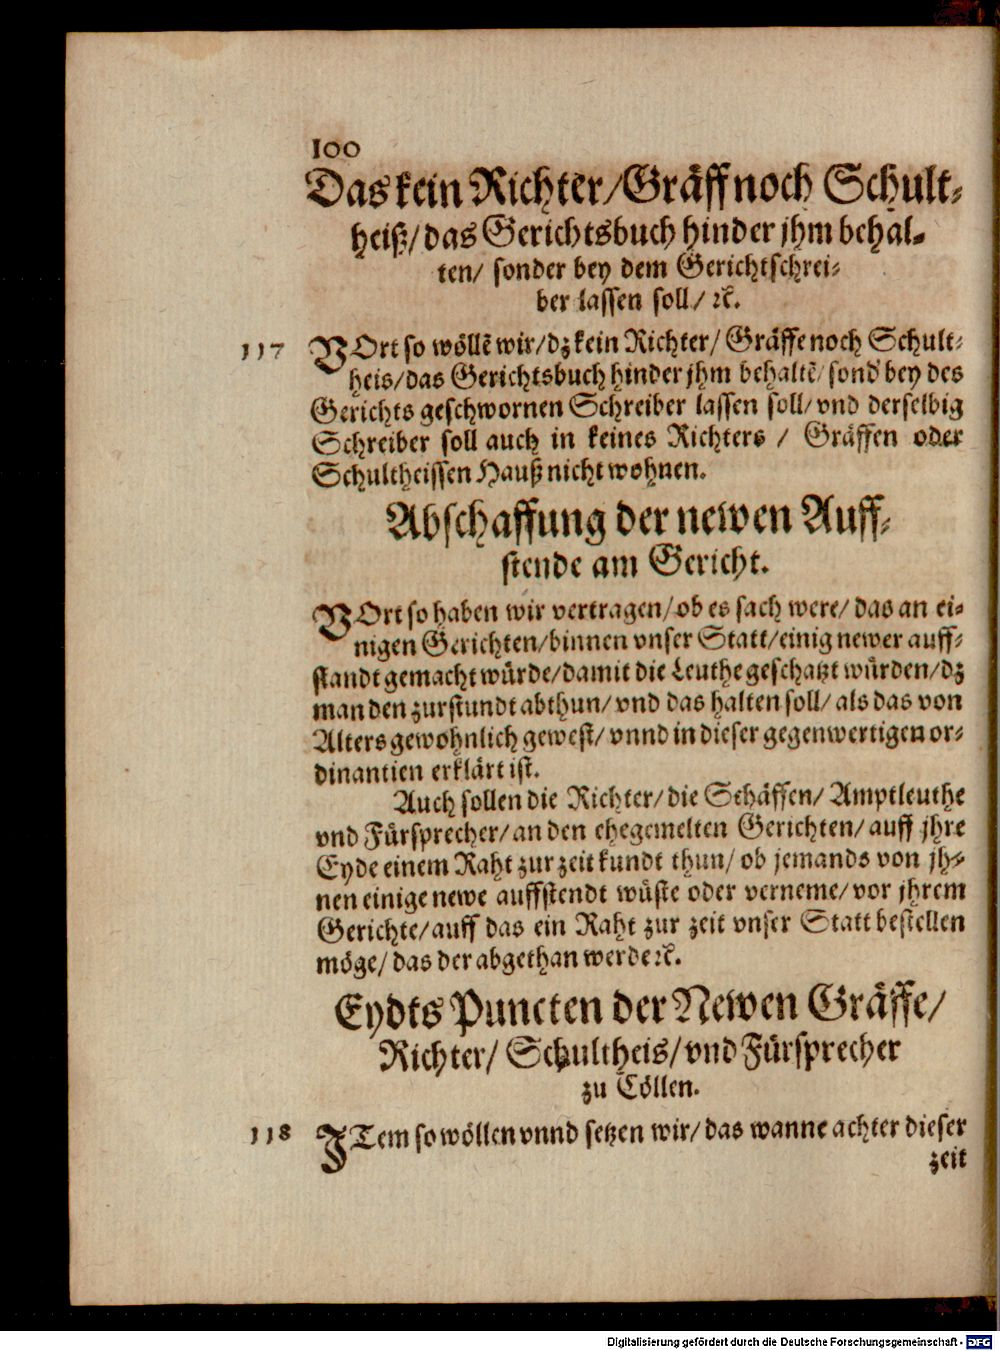 100
Das kein Richter/Gräff noch Schult-
heiß/das Gerichtsbuch hinder jhm behal-
ten/ sonder bey dem Gerichtschrei-
ber lassen soll/ ꝛc.
117 VOrt so wöllẽ wir/dz kein Richter/ Gräffe noch Schult-
heis/das Gerichtsbuch hinder jhm behaltẽ/ sond' bey des
Gerichts geschwornen Schreiber lassen soll/ vnd derselbig
Schreiber soll auch in keines Richters / Gräffen oder
Schultheissen Hauß nicht wohnen.
Abschaffung der newen Auff-
stende am Gericht.
VOrt so haben wir vertragen/ ob es sach were/ das an ei-
nigen Gerichten/binnen vnser Statt/einig newer auff-
standt gemacht würde/damit die Leuthe geschatzt würden/dz
man den zurstundt abthun/ vnd das halten soll/ als das von
Alters gewohnlich gewest/ vnnd in dieser gegenwertigen or-
dinantien erklärt ist.
Auch sollen die Richter/die Schäffen/ Amptleuthe
vnd Fürsprecher/an den ehegemelten Gerichten/ auff jhre
Eyde einem Raht zur zeit kundt thun/ ob jemands von jh-
nen einige newe auffstendt wüste oder verneme/ vor jhrem
Gerichte/auff das ein Raht zur zeit vnser Statt bestellen
möge/ das der abgethan werde ꝛc.
Eydts Puncten der Newen Gräffe/
Richter/ Schultheis/vnd Fürsprecher
zu Cöllen.
118 ITem so wöllen vnnd setzen wir/ das wanne achter dieser
zeit
Digitalisierung gefördert durch die Deutsche Forschungsgemeinschaft - DFG